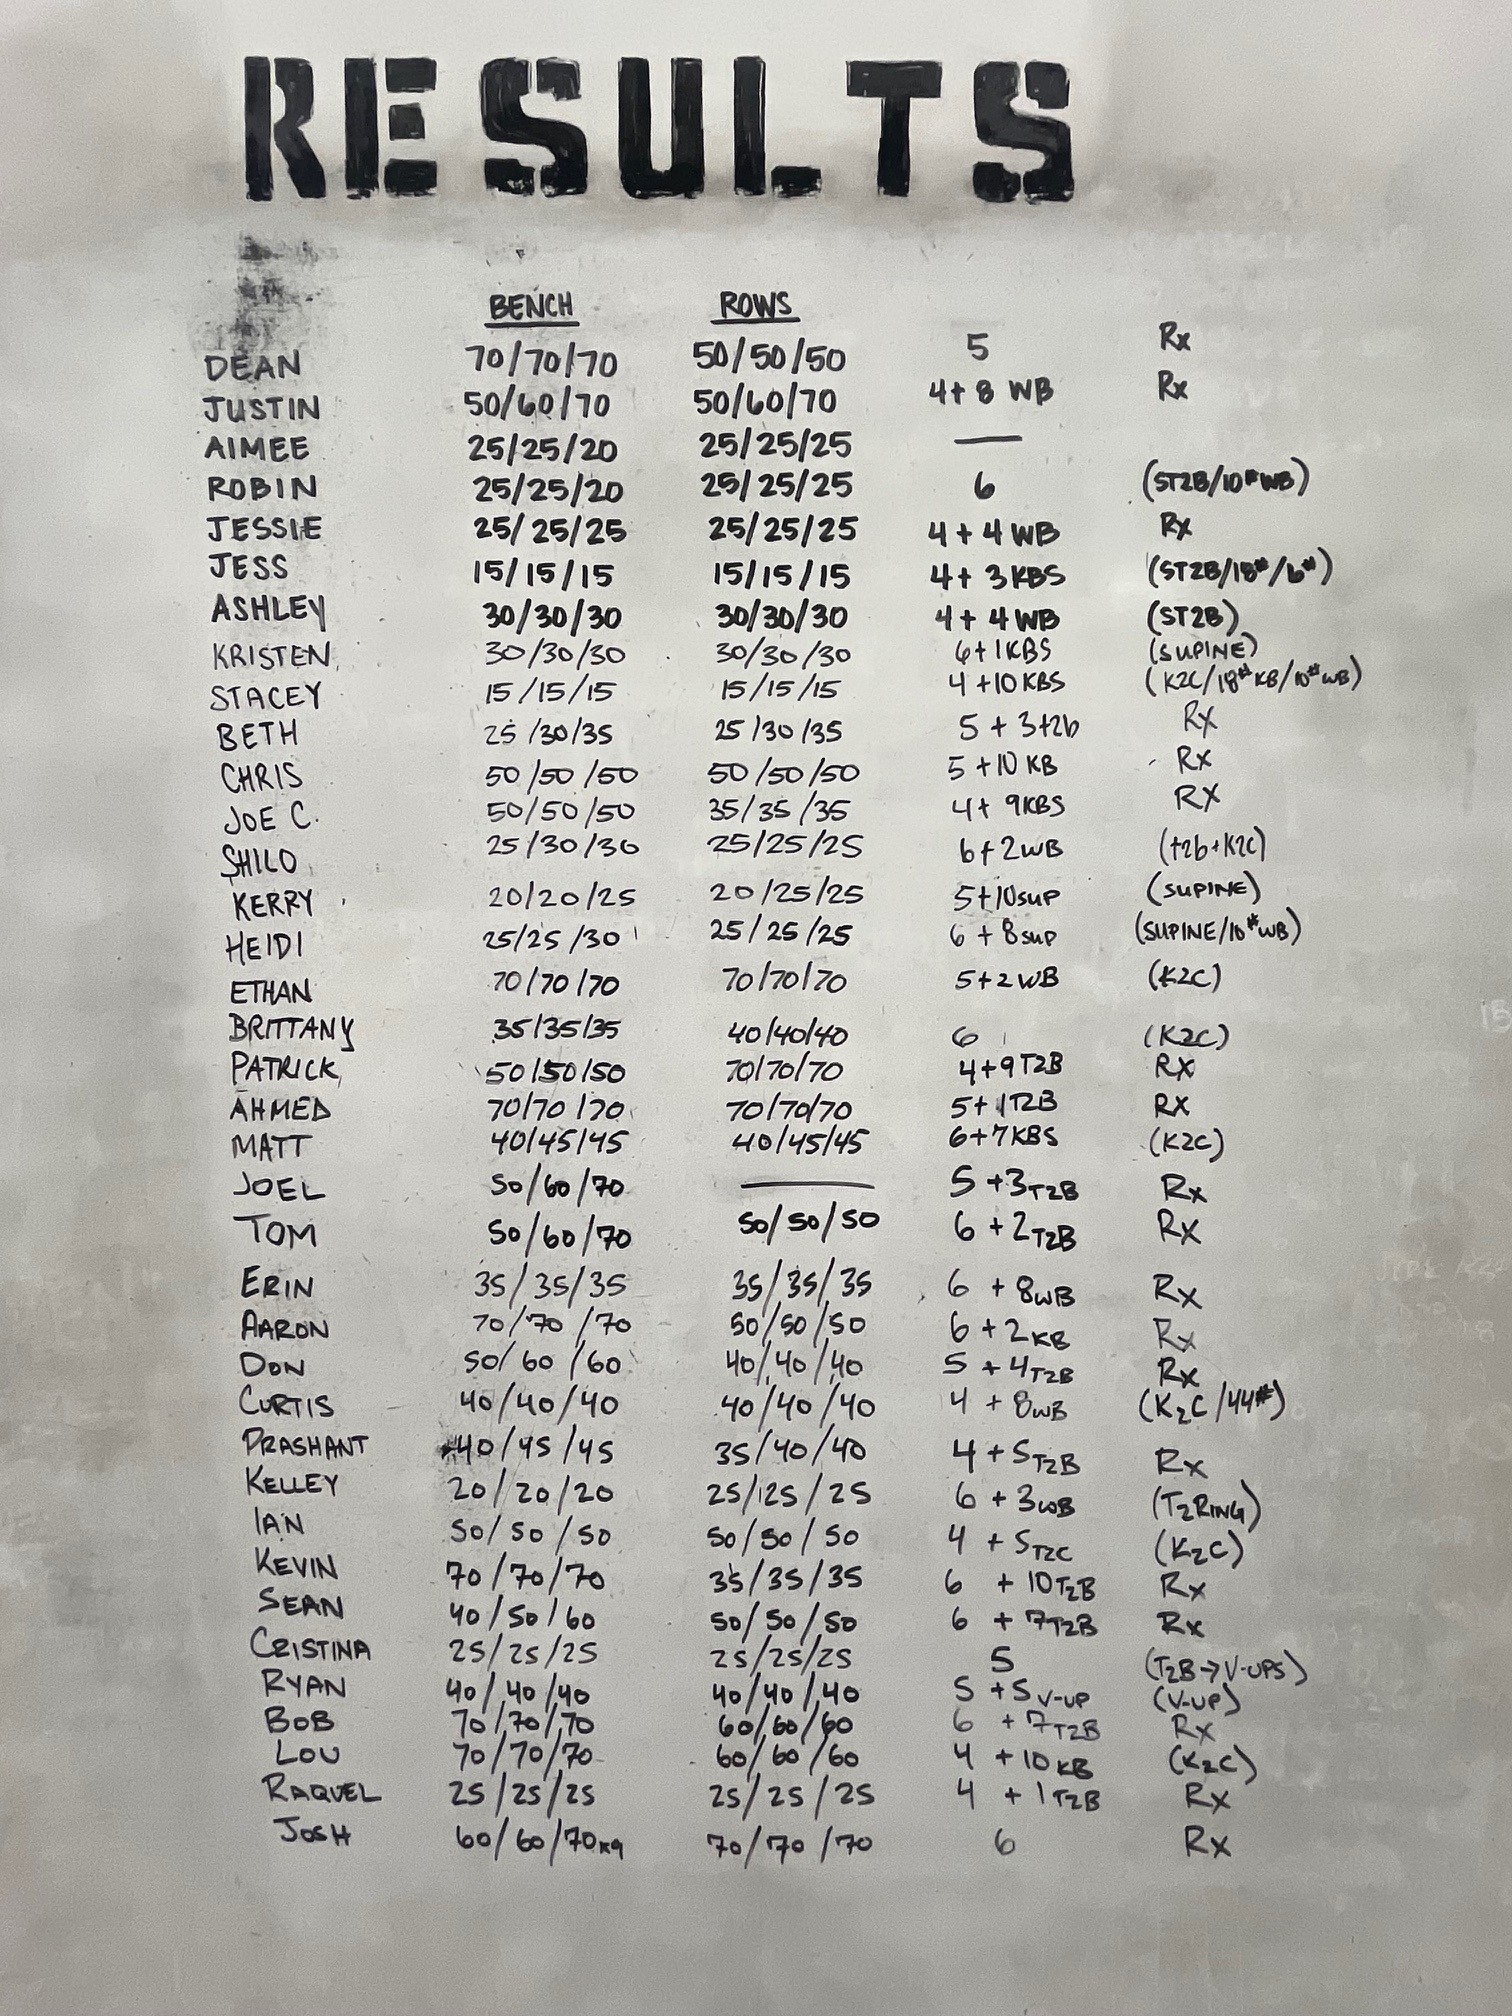 RESULTS
BENCH ROWS
DEAN 70/70/70 50/50/50 5 Rx
JUSTIN 50/60/70 50/60/70 4+8 WB Rx
AIMEE 25/25/20 25/25/25 —
ROBIN 25/25/20 25/25/25 6 (ST2B/10#WB)
JESSIE 25/25/25 25/25/25 4+4WB Rx
JESS 15/15/15 15/15/15 4+3KBS (ST2B/18#/6#)
ASHLEY 30/30/30 30/30/30 4+4WB (ST2B)
KRISTEN 30/30/30 30/30/30 6+1KBS (SUPINE)
STACEY 15/15/15 15/15/15 4+10KBS (K2C/18#KB/10#WB)
BETH 25/30/35 25/30/35 5+3t2b Rx
CHRIS 50/50/50 50/50/50 5+10 KB Rx
JOE C. 50/50/50 35/35/35 4+9KBS RX
SHILO 25/30/30 25/25/25 6+2WB (t2b+K2C)
KERRY 20/20/25 20/25/25 5+10SUP (SUPINE)
HEIDI 25/25/30 25/25/25 6+8SUP (SUPINE/10#WB)
ETHAN 70/70/70 70/70/70 5+2WB (K2C)
BRITTANY 35/35/35 40/40/40 6 (K2C)
PATRICK 50/50/50 70/70/70 4+9T2B RX
AHMED 70/70/70 70/70/70 5+1T2B RX
MATT 40/45/45 40/45/45 6+7KBS (K2C)
JOEL 50/60/70 — 5+3T2B Rx
TOM 50/60/70 50/50/50 6+2T2B Rx
ERIN 35/35/35 35/35/35 6+8WB Rx
AARON 70/70/70 50/50/50 6+2KB Rx
DON 50/60/60 40/40/40 5+4T2B Rx
CURTIS 40/40/40 40/40/40 4+8WB (K2C/44#)
PRASHANT 40/45/45 35/40/40 4+5T2B Rx
KELLEY 20/20/20 25/25/25 6+3WB (T2RING)
IAN 50/50/50 50/50/50 4+5T2C (K2C)
KEVIN 70/70/70 35/35/35 6+10T2B Rx
SEAN 40/50/60 50/50/50 6+7T2B Rx
CRISTINA 25/25/25 25/25/25 5 (T2B→V-UPS)
RYAN 40/40/40 40/40/40 5+5V-UP (V-UP)
BOB 70/70/70 60/60/60 6+7T2B Rx
LOU 70/70/70 60/60/60 4+10KB (K2C)
RAQUEL 25/25/25 25/25/25 4+1T2B Rx
JOSH 60/60/70kg 70/70/70 6 Rx